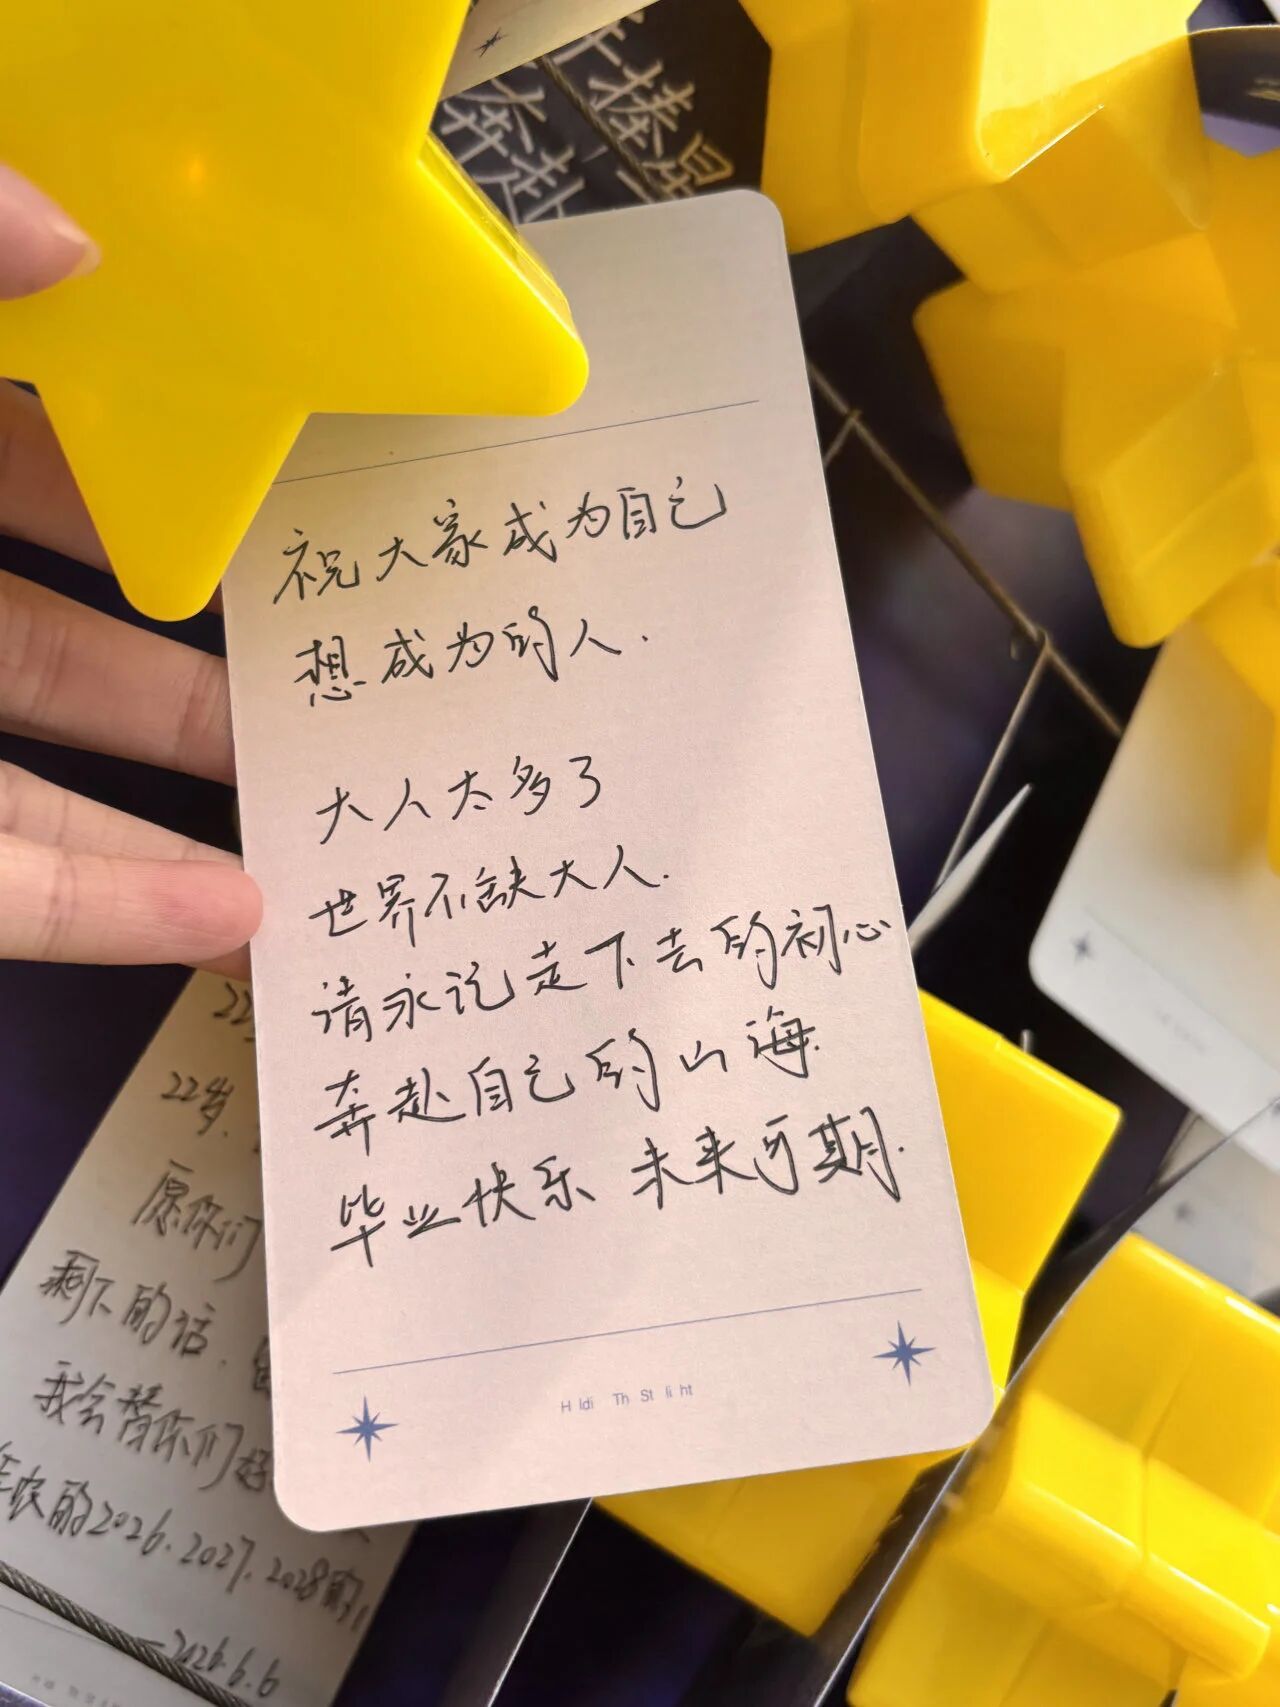 午撞星
奔赴
祝大家成为自己
想成为的人.
大人太多了
世界不缺大人.
请永记走下去的初心
奔赴自己的山海.
毕业快乐 未来可期.
H ldi Th St li ht
22岁.
愿你们
剩下的话.
我会替你们好
农的2026.2027.2028的
2026.6.6